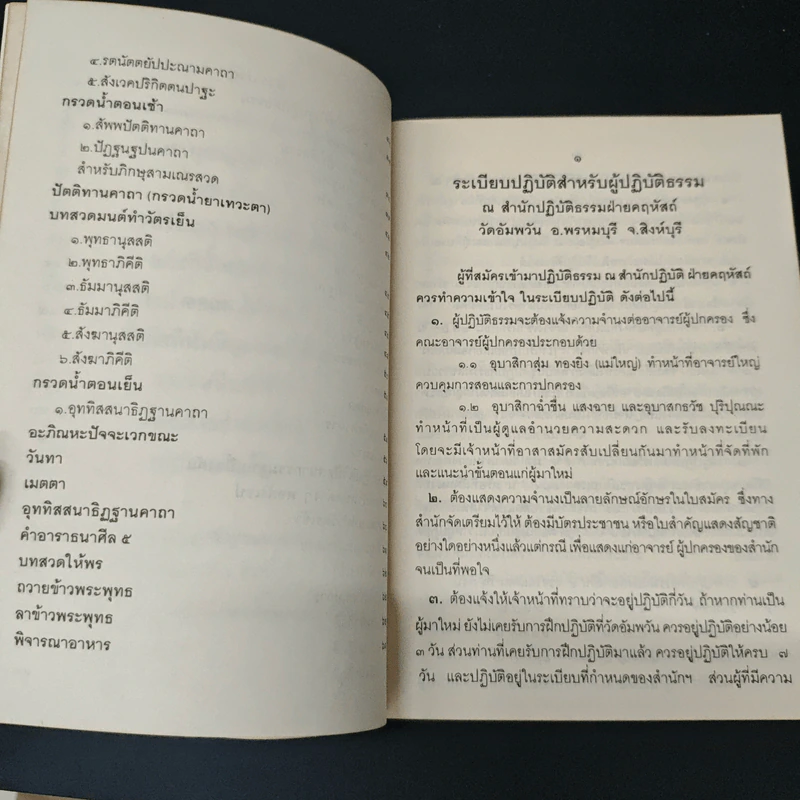 ๔.รตนัตตยัปปะณามคาถา
๕.สังเวคปริกิตตนปาฐะ
กรวดน้ำตอนเช้า
๑.สัพพปัตติทานคาถา
๒.ปัฏฐนฐปนคาถา
สำหรับภิกษุสามเณรสวด
ปัตติทานคาถา (กรวดน้ำยาเทวะตา)
บทสวดมนต์ทำวัตรเย็น
๑.พุทธานุสสติ
๒.พุทธาภิคีติ
๓.ธัมมานุสสติ
๔.ธัมมาภิคีติ
๕.สังฆานุสสติ
๖.สังฆาภิคีติ
กรวดน้ำตอนเย็น
๑.อุททิสสนาธิฏฐานคาถา
อะภิณหะปัจจะเวกขณะ
วันทา
เมตตา
อุททิสสนาธิฏฐานคาถา
คำอาราธนาศีล ๕
บทสวดให้พร
ถวายข้าวพระพุทธ
ลาข้าวพระพุทธ
พิจารณาอาหาร
๑
ระเบียบปฏิบัติสำหรับผู้ปฏิบัติธรรม
ณ สำนักปฏิบัติธรรมฝ่ายคฤหัสถ์
วัดอัมพวัน อ.พรหมบุรี จ.สิงห์บุรี
ผู้ที่สมัครเข้ามาปฏิบัติธรรม ณ สำนักปฏิบัติ ฝ่ายคฤหัสถ์
ควรทำความเข้าใจ ในระเบียบปฏิบัติ ดังต่อไปนี้
๑. ผู้ปฏิบัติธรรมจะต้องแจ้งความจำนงต่ออาจารย์ผู้ปกครอง ซึ่ง
คณะอาจารย์ผู้ปกครองประกอบด้วย
๑.๑ อุบาสิกาสุ่ม ทองยิ่ง (แม่ใหญ่) ทำหน้าที่อาจารย์ใหญ่
ควบคุมการสอนและการปกครอง
๑.๒ อุบาสิกาฉ่ำชื่น แสงฉาย และอุบาสกธวัช ปุริปุณณะ
ทำหน้าที่เป็นผู้ดูแลอำนวยความสะดวก และรับลงทะเบียน
โดยจะมีเจ้าหน้าที่อาสาสมัครสับเปลี่ยนกันมาทำหน้าที่จัดที่พัก
และแนะนำขั้นตอนแก่ผู้มาใหม่
๒. ต้องแสดงความจำนงเป็นลายลักษณ์อักษรในใบสมัคร ซึ่งทาง
สำนักจัดเตรียมไว้ให้ ต้องมีบัตรประชาชน หรือใบสำคัญแสดงสัญชาติ
อย่างใดอย่างหนึ่งแล้วแต่กรณี เพื่อแสดงแก่อาจารย์ ผู้ปกครองของสำนัก
จนเป็นที่พอใจ
๓. ต้องแจ้งให้เจ้าหน้าที่ทราบว่าจะอยู่ปฏิบัติกี่วัน ถ้าหากท่านเป็น
ผู้มาใหม่ ยังไม่เคยรับการฝึกปฏิบัติที่วัดอัมพวัน ควรอยู่ปฏิบัติอย่างน้อย
๓ วัน ส่วนท่านที่เคยรับการฝึกปฏิบัติมาแล้ว ควรอยู่ปฏิบัติให้ครบ ๗
วัน และปฏิบัติอยู่ในระเบียบที่กำหนดของสำนักฯ ส่วนผู้ที่มีความ